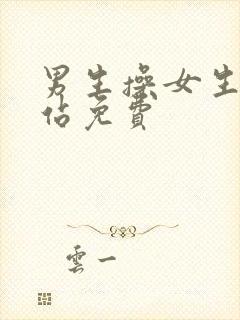 男生操女生
佔免費
雲一